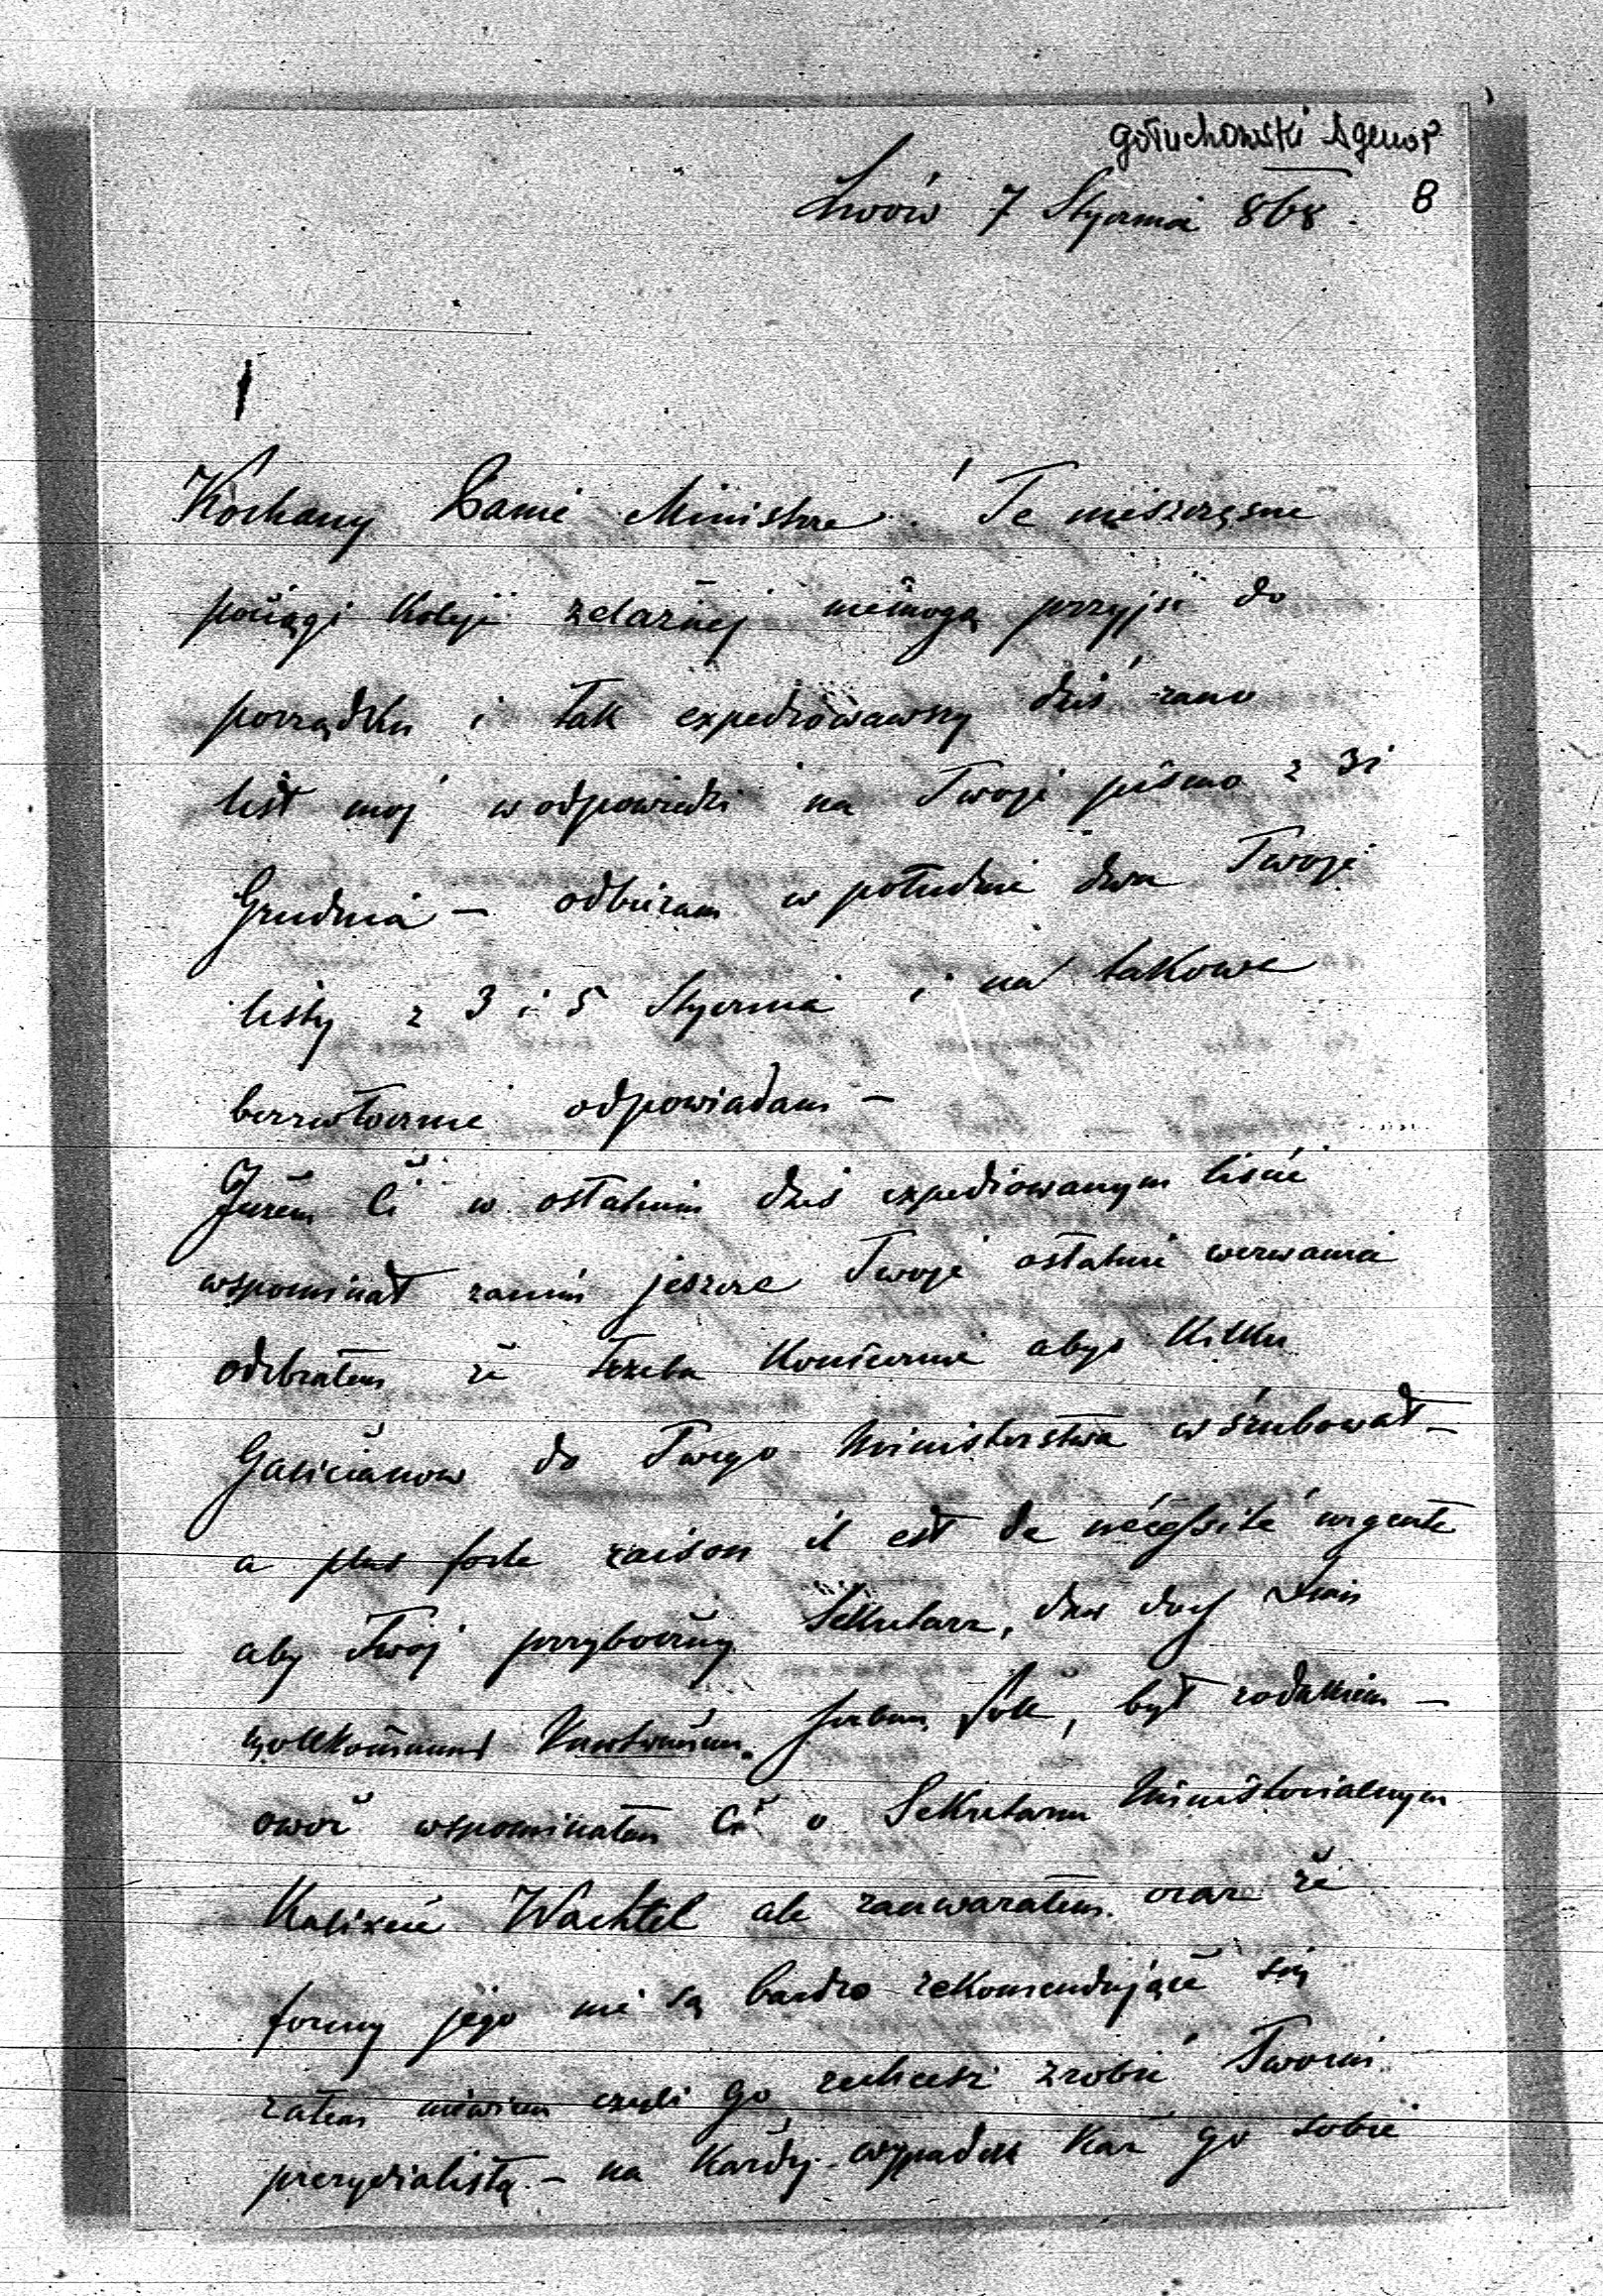 Gołuchowski Agenor
8
Lwów 7 Stycznia 868.
Kochany Panie Ministrze! Te nieszczęsne
pociągi koleji żelaznej niemogą przyjść do
porządku i tak expediowawszy dziś rano
list mój w odpowiedzi na Twoje pismo z 31
Grudnia – odbieram w południe dwa Twoje
listy z 3 i 5 Stycznia i na takowe
bezzwłocznie odpowiadam –
Jużem Ci w ostatnim dziś expediowanym liście
wspominał zanim jeszcze Twoje ostatnie wezwania
odebrałem że trzeba koniecznie abyś kilku
Galicianow do Twego Ministerstwa wśrubował –
a plus forte raison il est de nécessité urgente
aby Twój przyboczny Sekretarz, der doch Dein
vollkommens Vertrauen haben soll, był rodakiem –
owóż wspominałem Ci o Sekretarzu Ministerialnym
Kalixcie Wachtel ale zauważałem oraz że
formy jego nie są bardzo rekomendujące się
zatem niewiem czyli go zechcesz zrobić Twoim
prezydialistą – na każdy wypadek każ go sobie